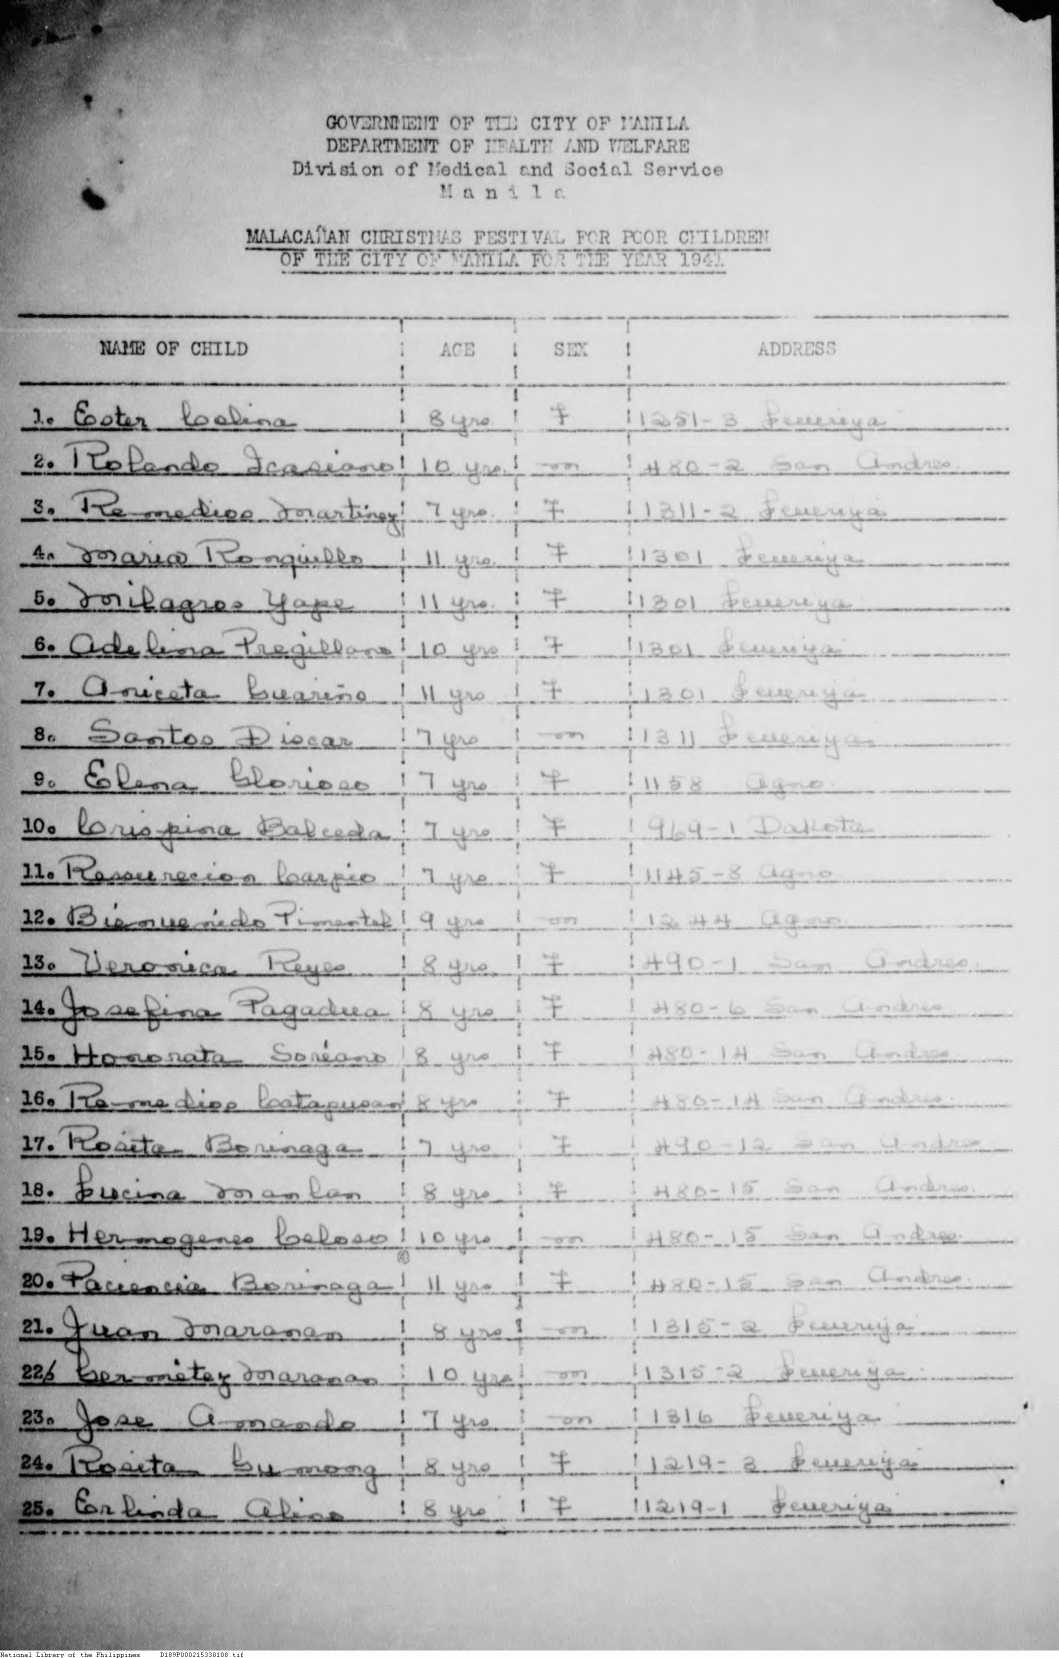 GOVERNMENT OF THE CITY OF MANILA
DEPARTMENT OF HEALTH AND WELFARE
Division of Medical and Social Service
M a n i l a
MALACAÑAN CHRISTMAS FESTIVAL FOR POOR CHILDREN
OF THE CITY OF MANILA FOR THE YEAR 1941
NAME OF CHILD AGE SEX ADDRESS
1. Ester Colina 8 yrs. F 1251-3
2. Rolando Icasiano 10 yrs. m 480-2 San Andres
3. Remedios Martinez 7 yrs. F 1311-2
4. Maria Ronquillo 11 yrs. F 1301
5. Milagros Yape 11 yrs. F 1301
6. Adelina Pregillano 10 yrs F 1301
7. Aniceta Guariño 11 yrs F 1301
8. Santos Discar 7 yrs m 1311
9. Elena Glorioso 7 yrs F 1158 Agno
10. Crispina Balceda 7 yrs F 969-1 Dakota
11. Ressurecion Carpio 7 yrs F 1145-8 Agno
12. Bienvenido Pimentel 9 yrs m 1244 Agno
13. Veronica Reyes 8 yrs. F 490-1 San Andres
14. Josefina Pagadua 8 yrs F 480-6 San Andres
15. Honorata Soriano 8 yrs F 480-14 San Andres
16. Remedios Catapusan 8 yrs F 480-14 San Andres
17. Rosita Borinaga 7 yrs F 490-12 San Andres
18. Lucina Manlan 8 yrs F 480-15 San Andres
19. Hermogenes Celoso 10 yrs m 480-15 San Andres
20. Paciencia Borinaga 11 yrs F 480-15 San Andres
21. Juan Maranan 8 yrs m 1315-2
22. Maranan 10 yrs m 1315-2
23. Jose Amando 7 yrs m 1316
24. Rosita Gumong 8 yrs F 1219-3
25. Erlinda Alino 8 yrs F 1219-1
National Library of the Philippines D189P000215338108.tif